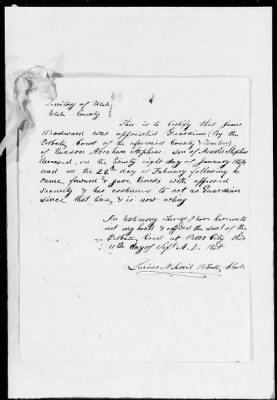 Territory of Utah
Utah County
This is to Certify that James
Woodward was appointed Guardian (by the
Probate Court of the aforesaid County & Territory)
of Hudson Abraham Stephens son of Stephens
deceased, on the twenty eight day of January 1854
and on the 22nd day of February following he
came forward & gave Bonds with approved
security & has continued to act as Guardian
since that time, & is now acting
In testimony whereof I have hereunto
set my hand & affixed the seal of the
Probate Court at Provo City this
11th day of Sept A.D. 185
Lucius N. Scovil Probate Clerk